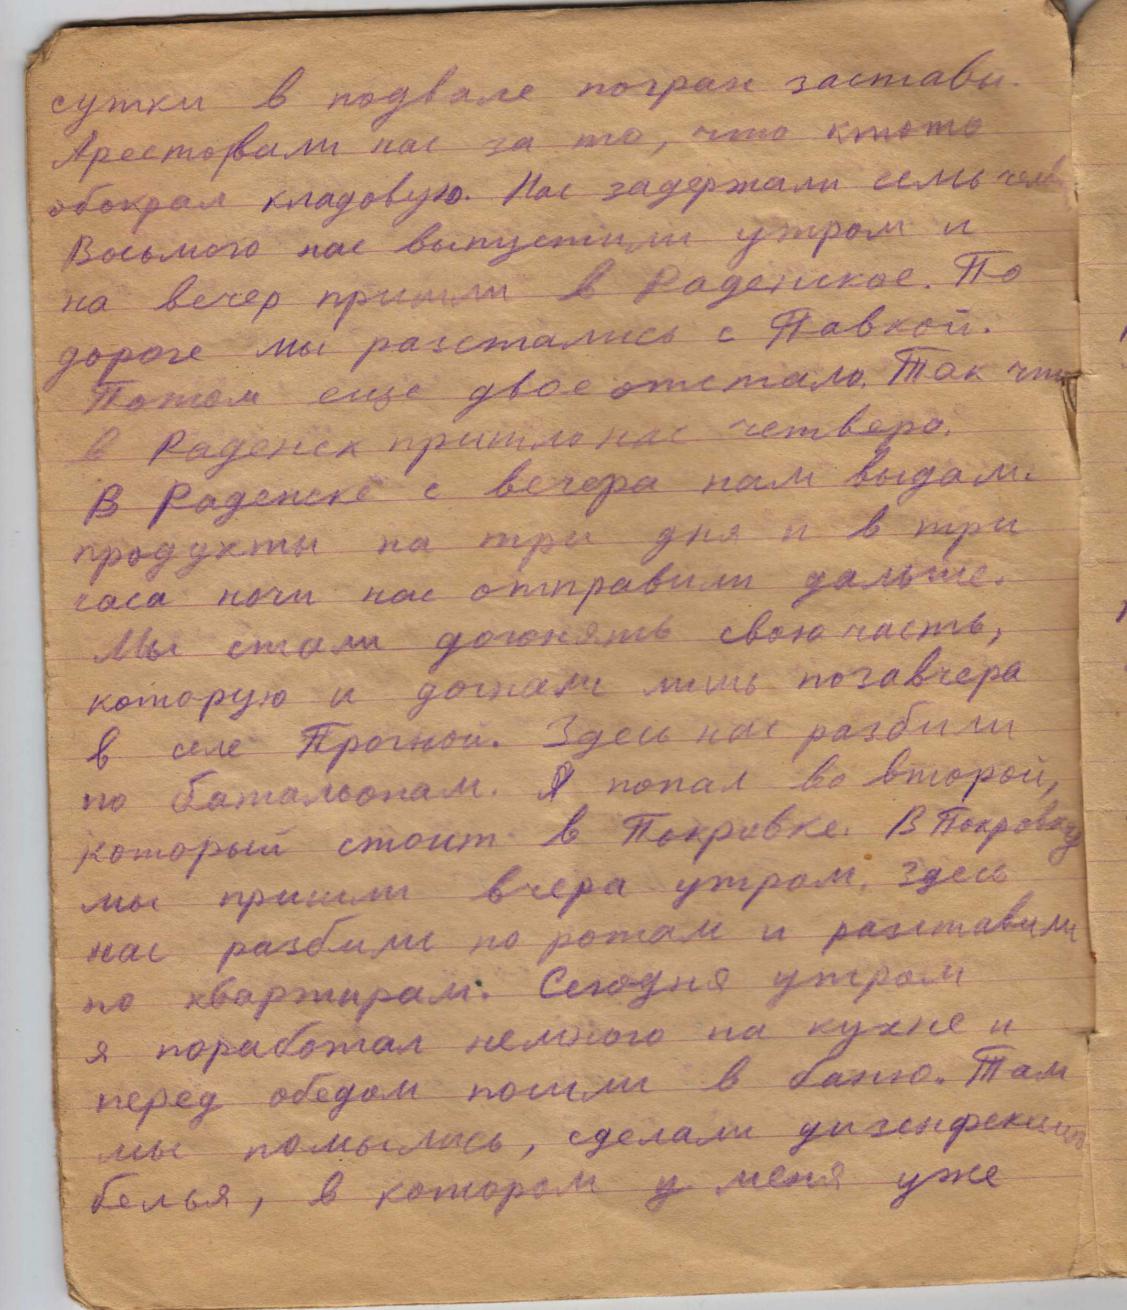 сутки в подвале погран заставы.
Арестовали нас за то, что ктото
обокрал кладовую. Нас задержали семь чело
Восьмого нас выпустили утром и
на вечер пришли в Раденское. По
дороге мы разстались с Павкой.
Потом еще двое отстало. Так что
в Раденск пришло нас четверо.
В Раденске с вечера нам выдали
продукты на три дня и в три
часа ночи нас отправили дальше.
Мы стали догонять свою часть,
которую и догнали лишь позавчера
в селе Прогной. Здесь нас разбили
по батальонам. Я попал во второй,
который стоит в Покровке. В Покровку
мы пришли вчера утром. Здесь
нас разбили по ротам и разставили
по квартирам. Сегодня утром
я поработал немного на кухне и
перед обедом пошли в баню. Там
мы помылись, сделали дизенфекцию
белья, в котором у меня уже